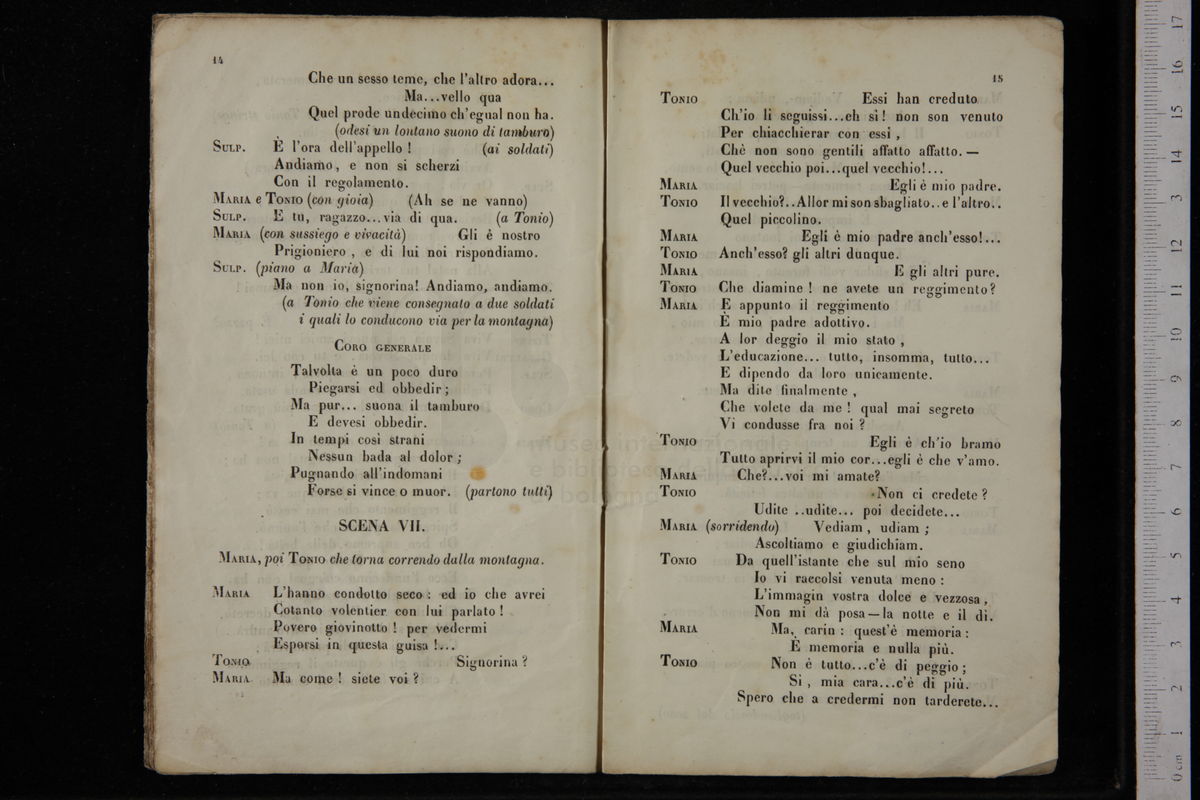 14
Che un sesso teme, che l'altro adora...
Ma...vello qua
Quel prode undecimo ch'egual non ha.
(odesi un lontano suono di tamburo)
SULP. È l'ora dell'appello ! (ai soldati)
Andiamo, e non si scherzi
Con il regolamento.
MARIA e TONIO (con gioia) (Ah se ne vanno)
SULP. E tu, ragazzo...via di qua. (a Tonio)
MARIA (con sussiego e vivacità) Gli è nostro
Prigioniero , e di lui noi rispondiamo.
SULP. (piano a Maria)
Ma non io, signorina! Andiamo, andiamo.
(a Tonio che viene consegnato a due soldati
i quali lo conducono via per la montagna)
CORO GENERALE
Talvolta è un poco duro
Piegarsi ed obbedir;
Ma pur... suona il tamburo
E devesi obbedir.
In tempi così strani
Nessun bada al dolor;
Pugnando all'indomani
Forse si vince o muor. (partono tutti)
SCENA VII.
MARIA, poi TONIO che torna correndo dalla montagna.
MARIA L'hanno condotto seco : ed io che avrei
Cotanto volentier con lui parlato !
Povero giovinotto ! per vedermi
Esporsi in questa guisa !...
TONIO Signorina ?
MARIA Ma come ! siete voi ?
15
TONIO Essi han creduto
Ch'io li seguissi...eh sì! non son venuto
Per chiacchierar con essi ,
Chè non sono gentili affatto affatto. —
Quel vecchio poi...quel vecchio!...
MARIA Egli è mio padre.
TONIO Il vecchio?..Allor mi son sbagliato..e l'altro..
Quel piccolino.
MARIA Egli è mio padre anch'esso!...
TONIO Anch'esso? gli altri dunque.
MARIA E gli altri pure.
TONIO Che diamine ! ne avete un reggimento?
MARIA E appunto il reggimento
È mio padre adottivo.
A lor deggio il mio stato ,
L'educazione... tutto, insomma, tutto...
E dipendo da loro unicamente.
Ma dite finalmente ,
Che volete da me ! qual mai segreto
Vi condusse fra noi ?
TONIO Egli è ch'io bramo
Tutto aprirvi il mio cor...egli è che v'amo.
MARIA Che?...voi mi amate?
TONIO Non ci credete ?
Udite ..udite... poi decidete...
MARIA (sorridendo) Vediam , udiam ;
Ascoltiamo e giudichiam.
TONIO Da quell'istante che sul mio seno
Io vi raccolsi venuta meno :
L'immagin vostra dolce e vezzosa ,
Non mi dà posa — la notte e il dì.
MARIA Ma, carin : quest'è memoria :
È memoria e nulla più.
TONIO Non è tutto...c'è di peggio ;
Sì , mia cara...c'è di più.
Spero che a credermi non tarderete...
museo internazionale
e biblioteca della musica
bologna
0 cm 1 2 3 4 5 6 7 8 9 10 11 12 13 14 15 16 17